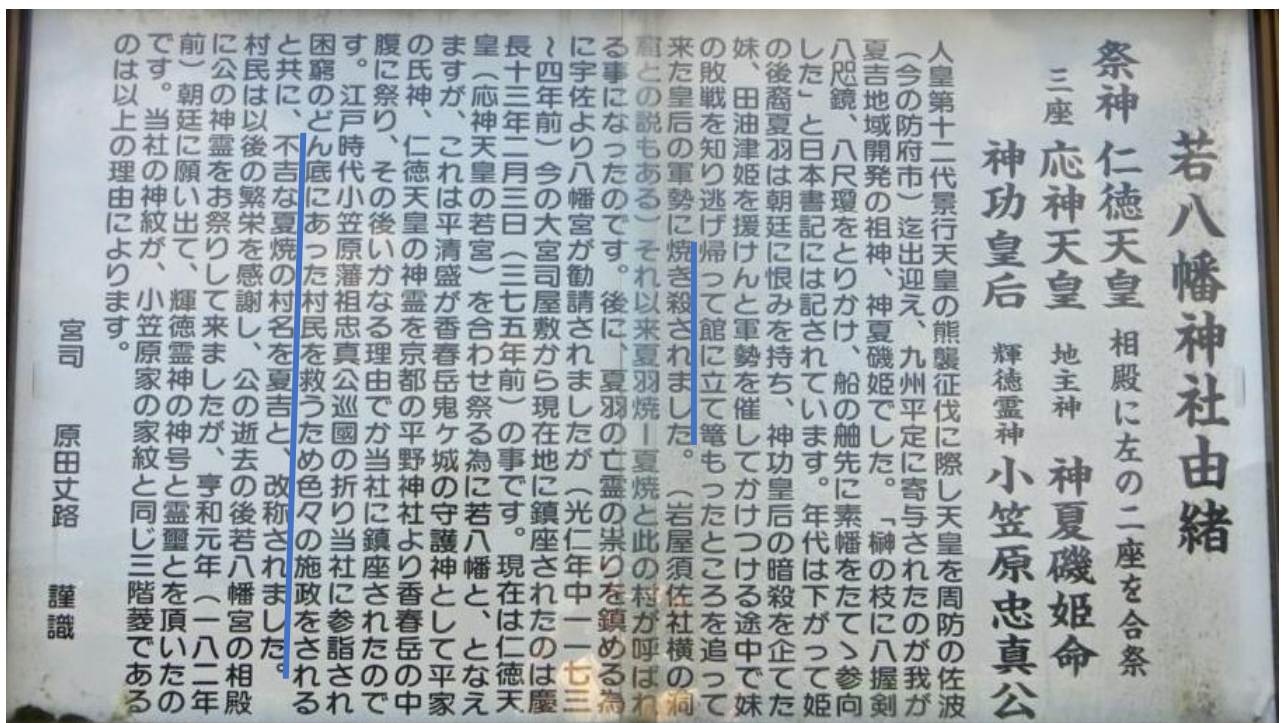 若八幡神社由緒
祭神 仁徳天皇 相殿に左の二座を合祭
三座 応神天皇 地主神 神夏磯姫命
神功皇后 輝徳霊神 小笠原忠真公
人皇第十二代景行天皇の熊襲征伐に際し天皇を周防の佐波
（今の防府市）迄出迎え、九州平定に寄与されたのが我が
夏吉地域開発の祖神、神夏磯姫でした。「榊の枝に八握剣
八咫鏡、八尺瓊をとりかけ、船の舳先に素幡をたてゝ参向
した」と日本書記には記されています。年代は下がって姫
の後裔夏羽は朝廷に恨みを持ち、神功皇后の暗殺を企てた
妹、田油津姫を援けんと軍勢を催してかけつける途中で妹
の敗戦を知り逃げ帰って館に立て篭もったところを追って
来た皇后の軍勢に焼き殺されました。（岩屋須佐社横の洞
窟との説もある）それ以来夏羽焼ー夏焼と此の村が呼ばれ
る事になったのです。後に、夏羽の亡霊の祟りを鎮める為
に宇佐より八幡宮が勧請されましたが（光仁年中一一七三
〜四年前）今の大宮司屋敷から現在地に鎮座されたのは慶
長十三年二月三日（三七五年前）の事です。現在は仁徳天
皇（応神天皇の若宮）を合わせ祭る為に若八幡と、となえ
ますが、これは平清盛が香春岳鬼ヶ城の守護神として平家
の氏神、仁徳天皇の神霊を京都の平野神社より香春岳の中
腹に祭り、その後いかなる理由でか当社に鎮座されたので
す。江戸時代小笠原藩祖忠真公巡國の折り当社に参詣され
困窮のどん底にあった村民を救うため色々の施政をされる
と共に、不吉な夏焼の村名を夏吉と、改称されました。
村民は以後の繁栄を感謝し、公の逝去の後若八幡宮の相殿
に公の神霊をお祭りして来ましたが、享和元年（一八二年
前）朝廷に願い出て、輝徳霊神の神号と霊璽とを頂いたの
です。当社の神紋が、小笠原家の家紋と同じ三階菱である
のは以上の理由によります。
宮司 原田丈路 謹識